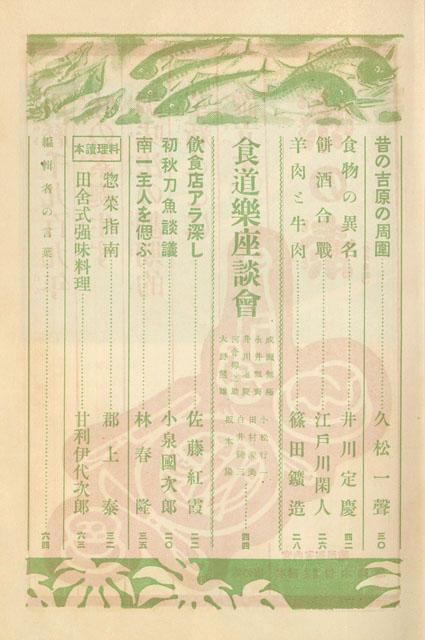 昔の吉原の周圍……久松一聲 三〇
食物の異名……井川定慶 四二
餅酒合戰……江戸川閑人 二六
羊肉と牛肉……篠田鑛造 二八
食道樂座談會……四四
飮食店アラ深し……佐藤紅霞 二二
初秋刀魚談議……小泉國次郎 二〇
南一主人を偲ぶ……林春隆 三五
料理讀本
惣菜指南……郡上泰 三二
田舎式强味料理……甘利伊代次郎 六三
編輯者の言葉……六四